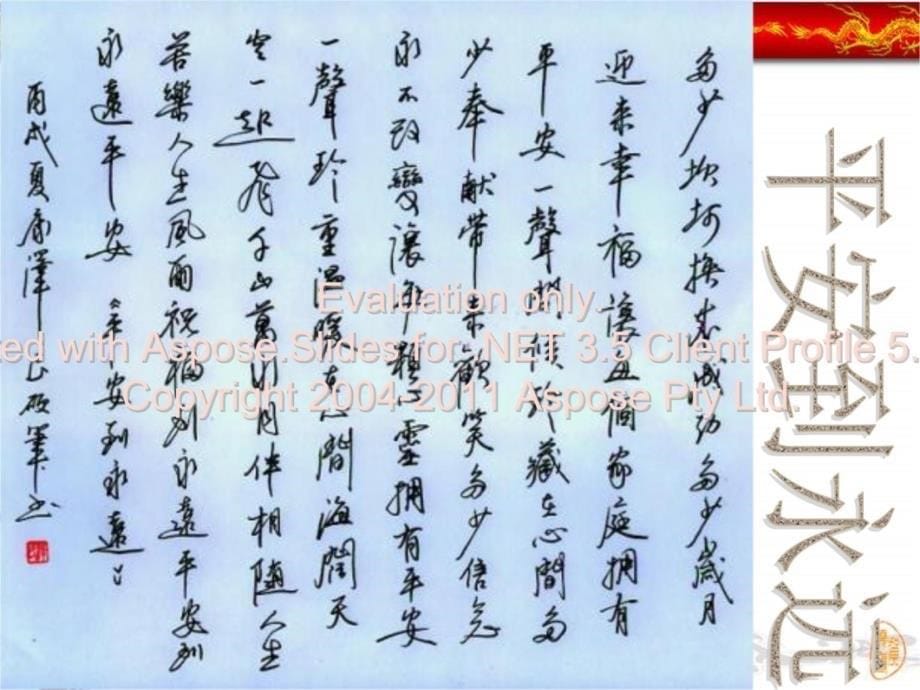 平安到永远
多少坎坷換来成功多少歲月
迎来幸福讓個家庭拥有
平安一聲問候珍藏在心間多
少奉献带来歡笑多少信念
永不改變讓每颗心靈拥有平安
一聲珍重温暖在心間海闊天
空一起飛千山萬月伴相随人生
苦樂人生風雨祝福到永遠平安到
永遠平安《平安到永遠》
丙戌夏康澤硬筆书
Evaluation only.
ed with Aspose.Slides for .NET 3.5 Client Profile 5.
Copyright 2004-2011 Aspose Pty Ltd.